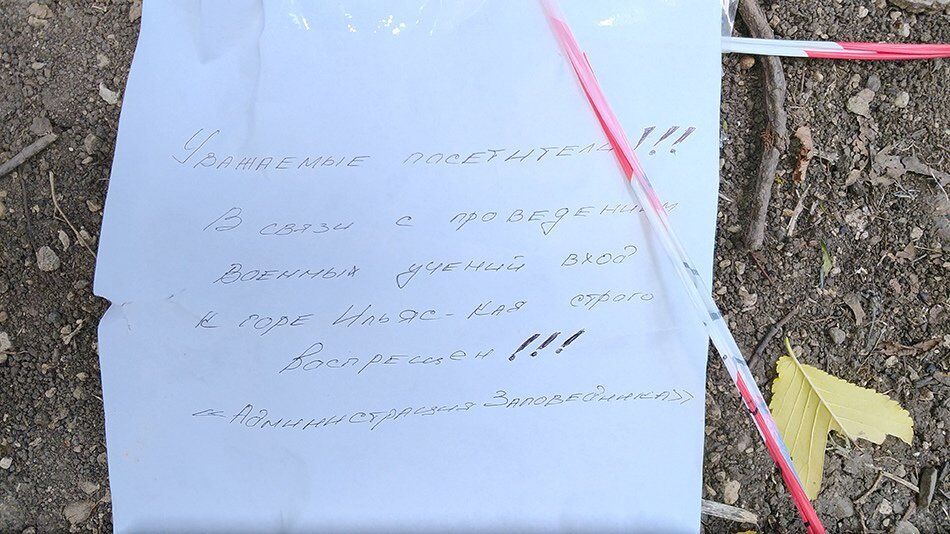 Уважаемые посетители!!!
В связи с проведением
военных учений вход
к горе Ильяс-Кая строго
воспрещен!!!
«Администрация Заповедника»